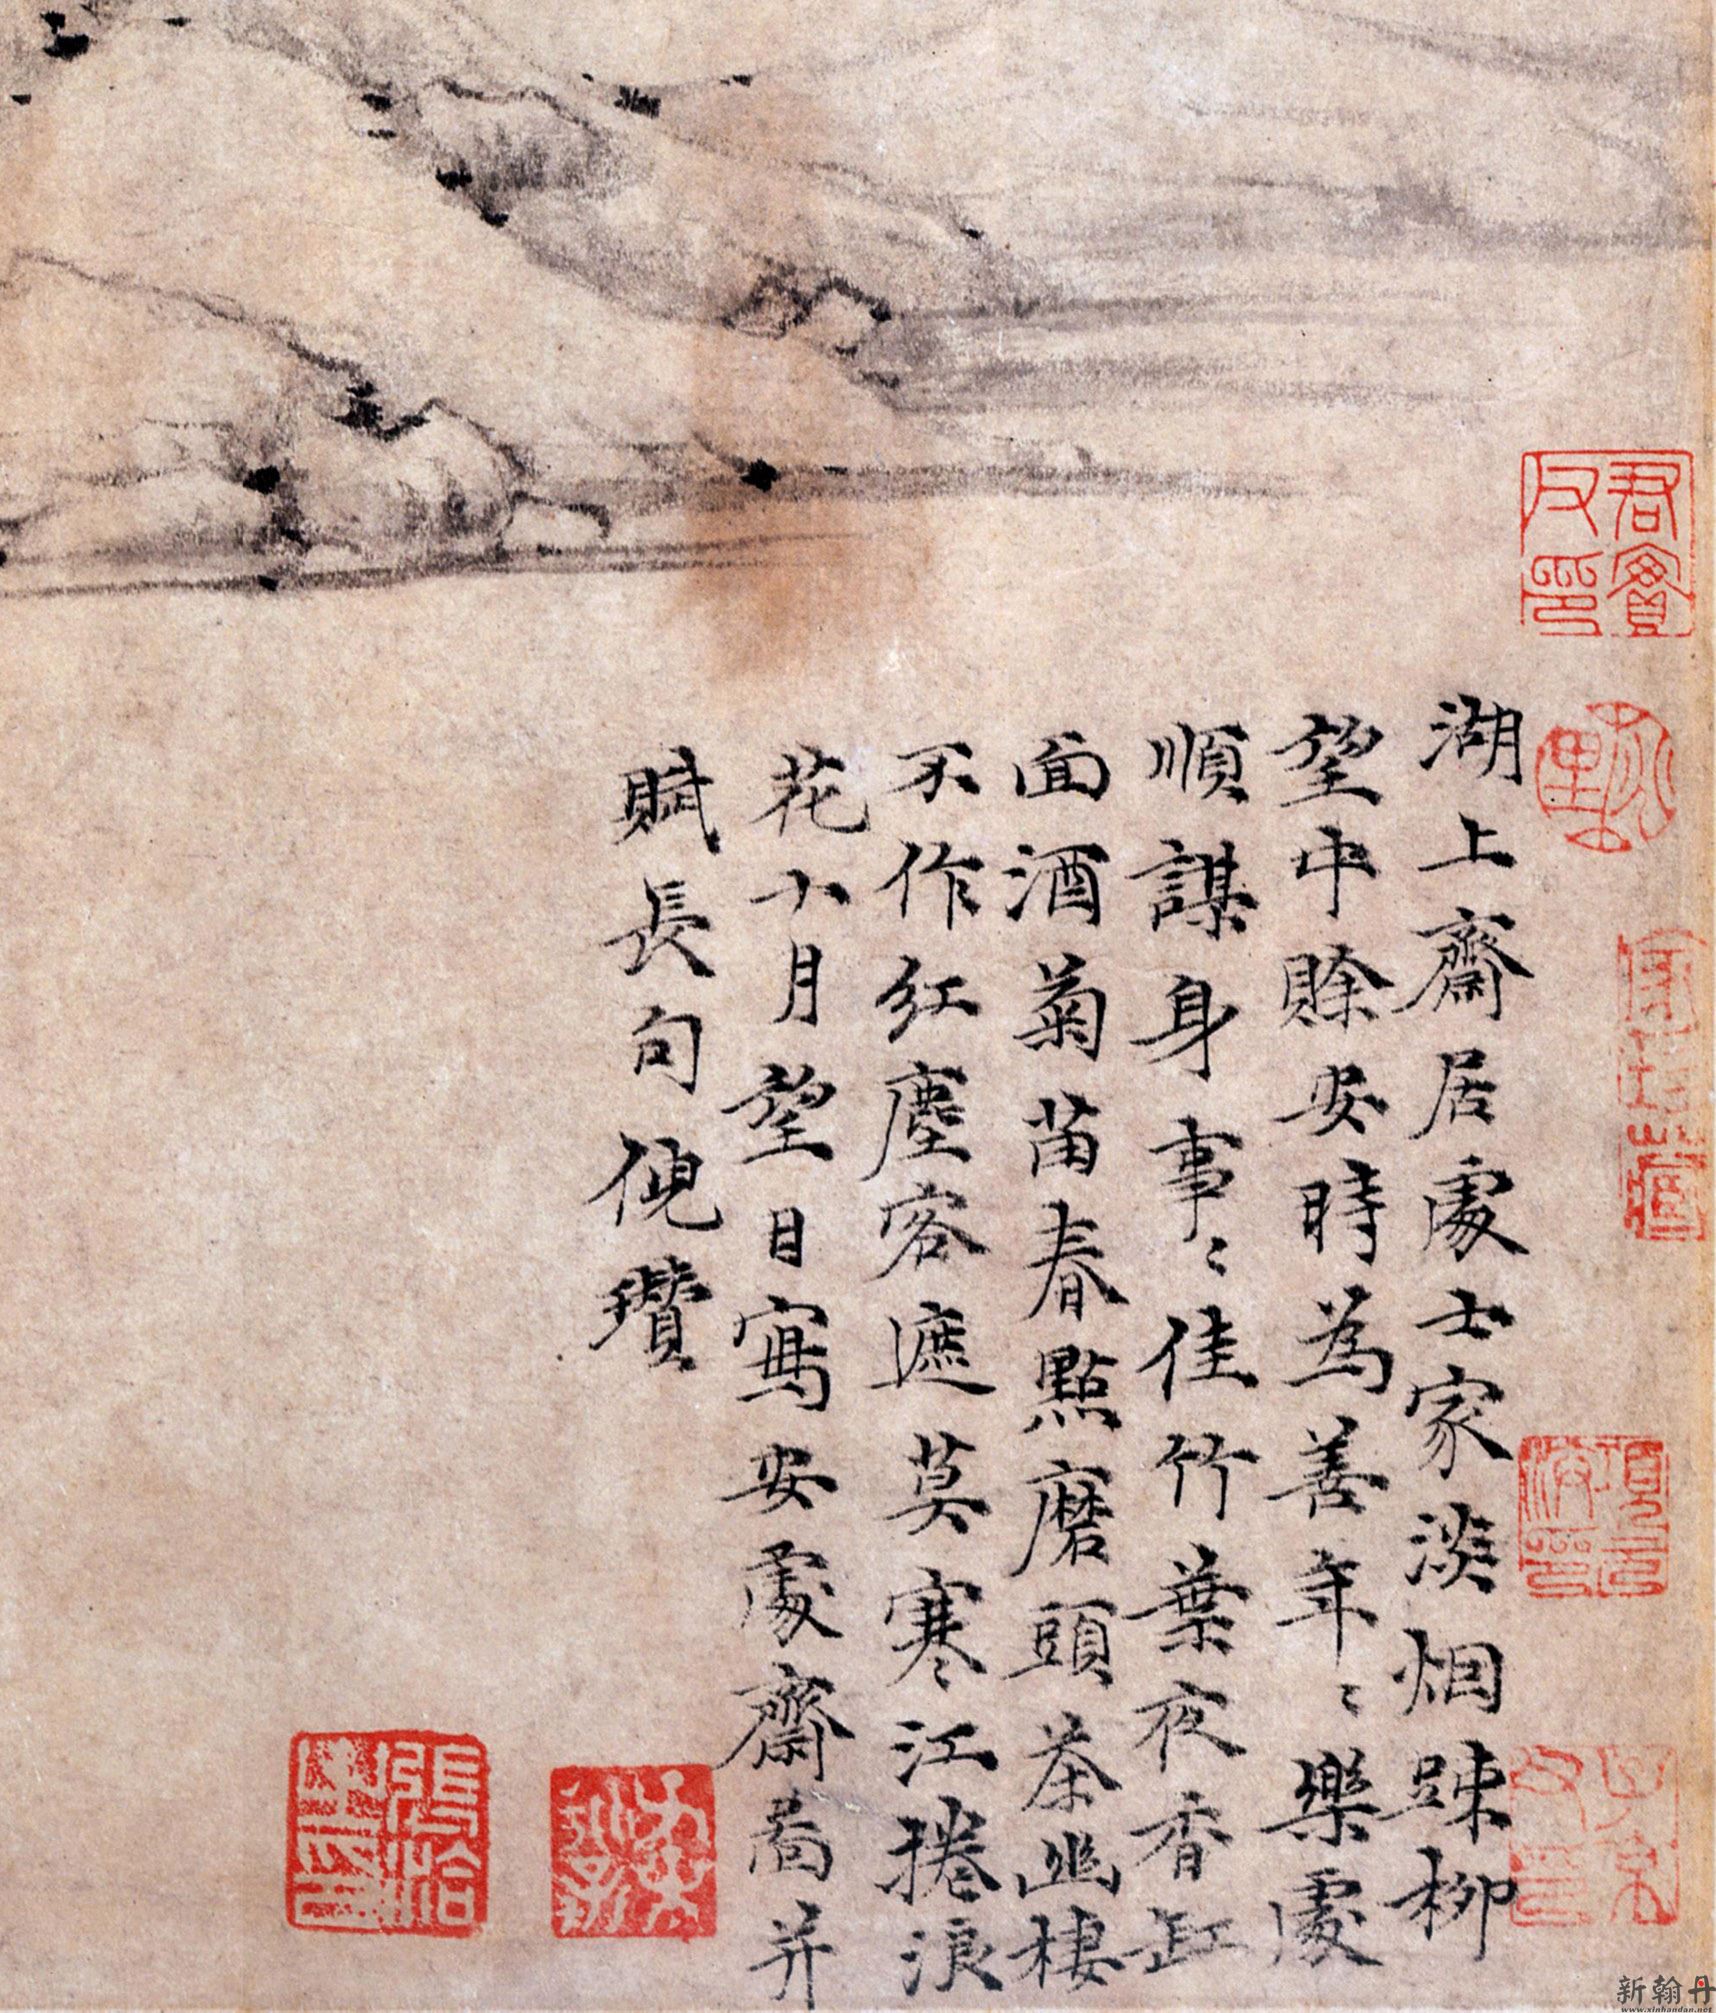 君實父印
項元汴印
子京父印
湖上齋居處士家淡烟踈柳
望中賖安時為善年〻樂處
順謀身事〻佳竹葉夜香缸
面酒菊苗春點磨頭茶幽棲
不作紅塵客遮莫寒江捲浪
花十月望日寫安處齋啚并
賦長句倪瓚
新翰丹
www.xinhandan.net